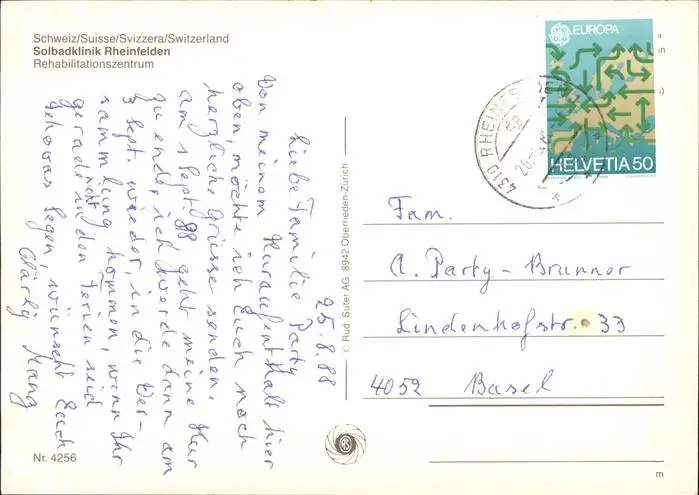 Schweiz/Suisse/Svizzera/Switzerland
Solbadklinik Rheinfelden
Rehabilitationszentrum
25.8.88
Liebe Familie Party
Von meinem Kuraufenthalt hier
oben, möchte ich Euch noch
herzliche Grüsse senden.
am 1 Sept. 88 geht meine Kur
zu ende, ich werde dann am
3 Sept. wieder, in die Ver-
sammlung kommen, wenn Ihr
gerade nicht in den Ferien seid
Jehovas Segen, wünscht Euch
Manz
Nr. 4256
© Rud. Suter AG, 8942 Oberrieden-Zürich
EUROPA
HELVETIA 50
4310 RHEINFELDEN
Fam.
A. Party-Brunner
Lindenhofstr. 33
4052 Basel